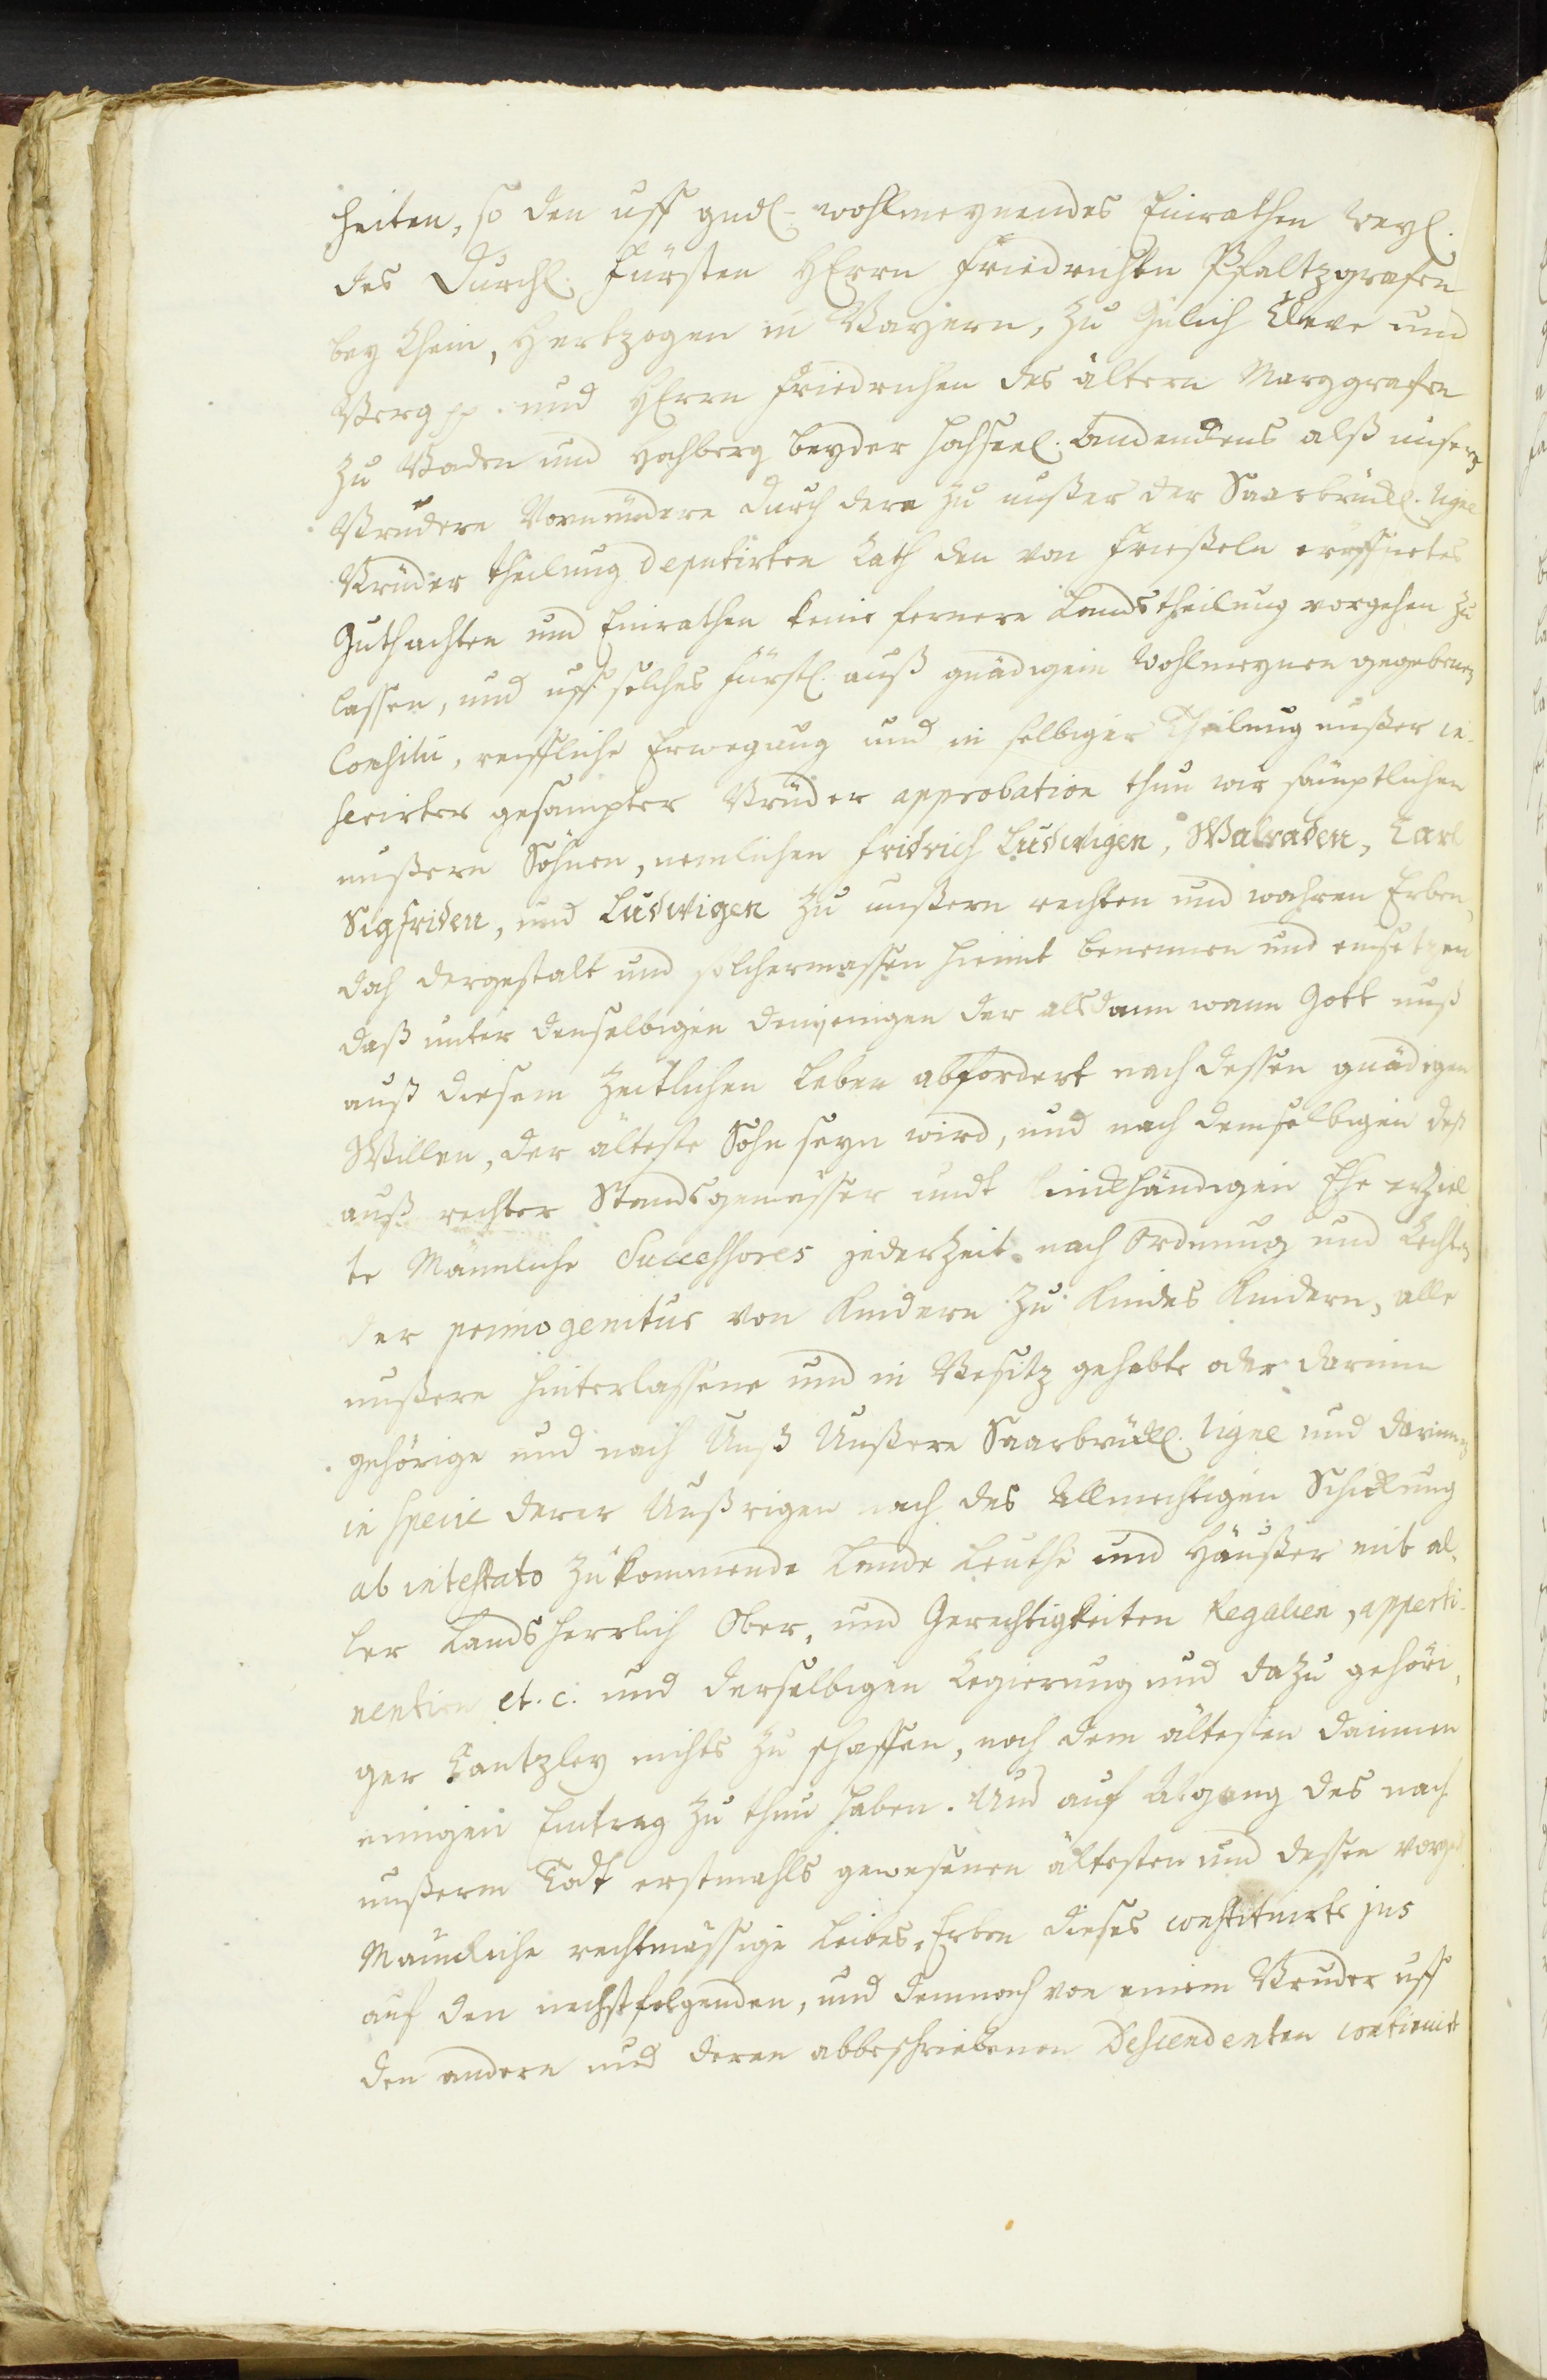 heiten, so den uff gndl. wohlmeynendes Einrathen Weyl.
des Durchl. Fürsten HErrn Friedrichen Pfaltzgrafen
bey Rhein, Hertzogen in Bayern, zu Gülich Cleve und
Berg pp. und HErrn Friedrichen des ältern Marggrafen
zu Baden und Hochberg beyder hochseel. Andenckens alß unserer
Brüdere Vormündere durch dero zu unßer der Saarbrückl. Ligne
Brüder theilung Deputirten Rath den von Frießeln eröffnetes
Guthachten und Einrathen keine fernere Landstheilung vorgehen zu
lassen, und uff solches Fürstl. auß gnädigem Wohlmeynen gegebenen
Consilii, reiffliche Erwegung und in selbiger Theilung unßer in-
serirter gesampter Brüder approbation thun wir sämptlichen
unßern Söhnen, nemlichen Fridrich Ludwigen, Walraden, Carl
Sigfriden, und Ludwigen zu unßern rechten und wahren Erben,
doch dergestalt und solchermassen hiemit benennen und einsetzen
daß unter denselbigen demjenigen der alsdann wann Gott unß
auß diesem Zeitlichen Leben abfordert nach dessen gnädigen
Willen, der älteste Sohn seyn wird, und nach demselbigen deß
auß rechter Standsgemässer undt linckhändigen Ehe erziel
te Männliche Successores jederzeit nach Ordnung und Rechten
der primogenitur von Kindern zu Kindes Kindern, alle
unßere hinterlassene und in Besitz gehabte oder darinn
gehörige und nach Unß Unßere Saarbrückl. Ligne und darinnen
in specie derer Unßrigen nach des Allmechtigen Schickung
ab intestato zukommende Lande Leuthe und Häußer mit al-
ler Landsherrlich Ober, und Gerechtigkeiten Regalien, apperti-
nentien et. c. und derselbigen Regierung und dazu gehöri-
ger Cantzley nichts zu schaffen, noch dem ältesten darinnen
einigen Eintrag zu thun haben. Und auf Abgang des nach
unßerm Todt erstmahls gewesenen ältesten und dessen vorged.
Männliche rechtmässige Leibes, Erben dieses constituirte jus
auf den nechstfolgenden, und demnach von einem Bruder uff
den andern und deren abbeschriebenen Descendenten continuirt